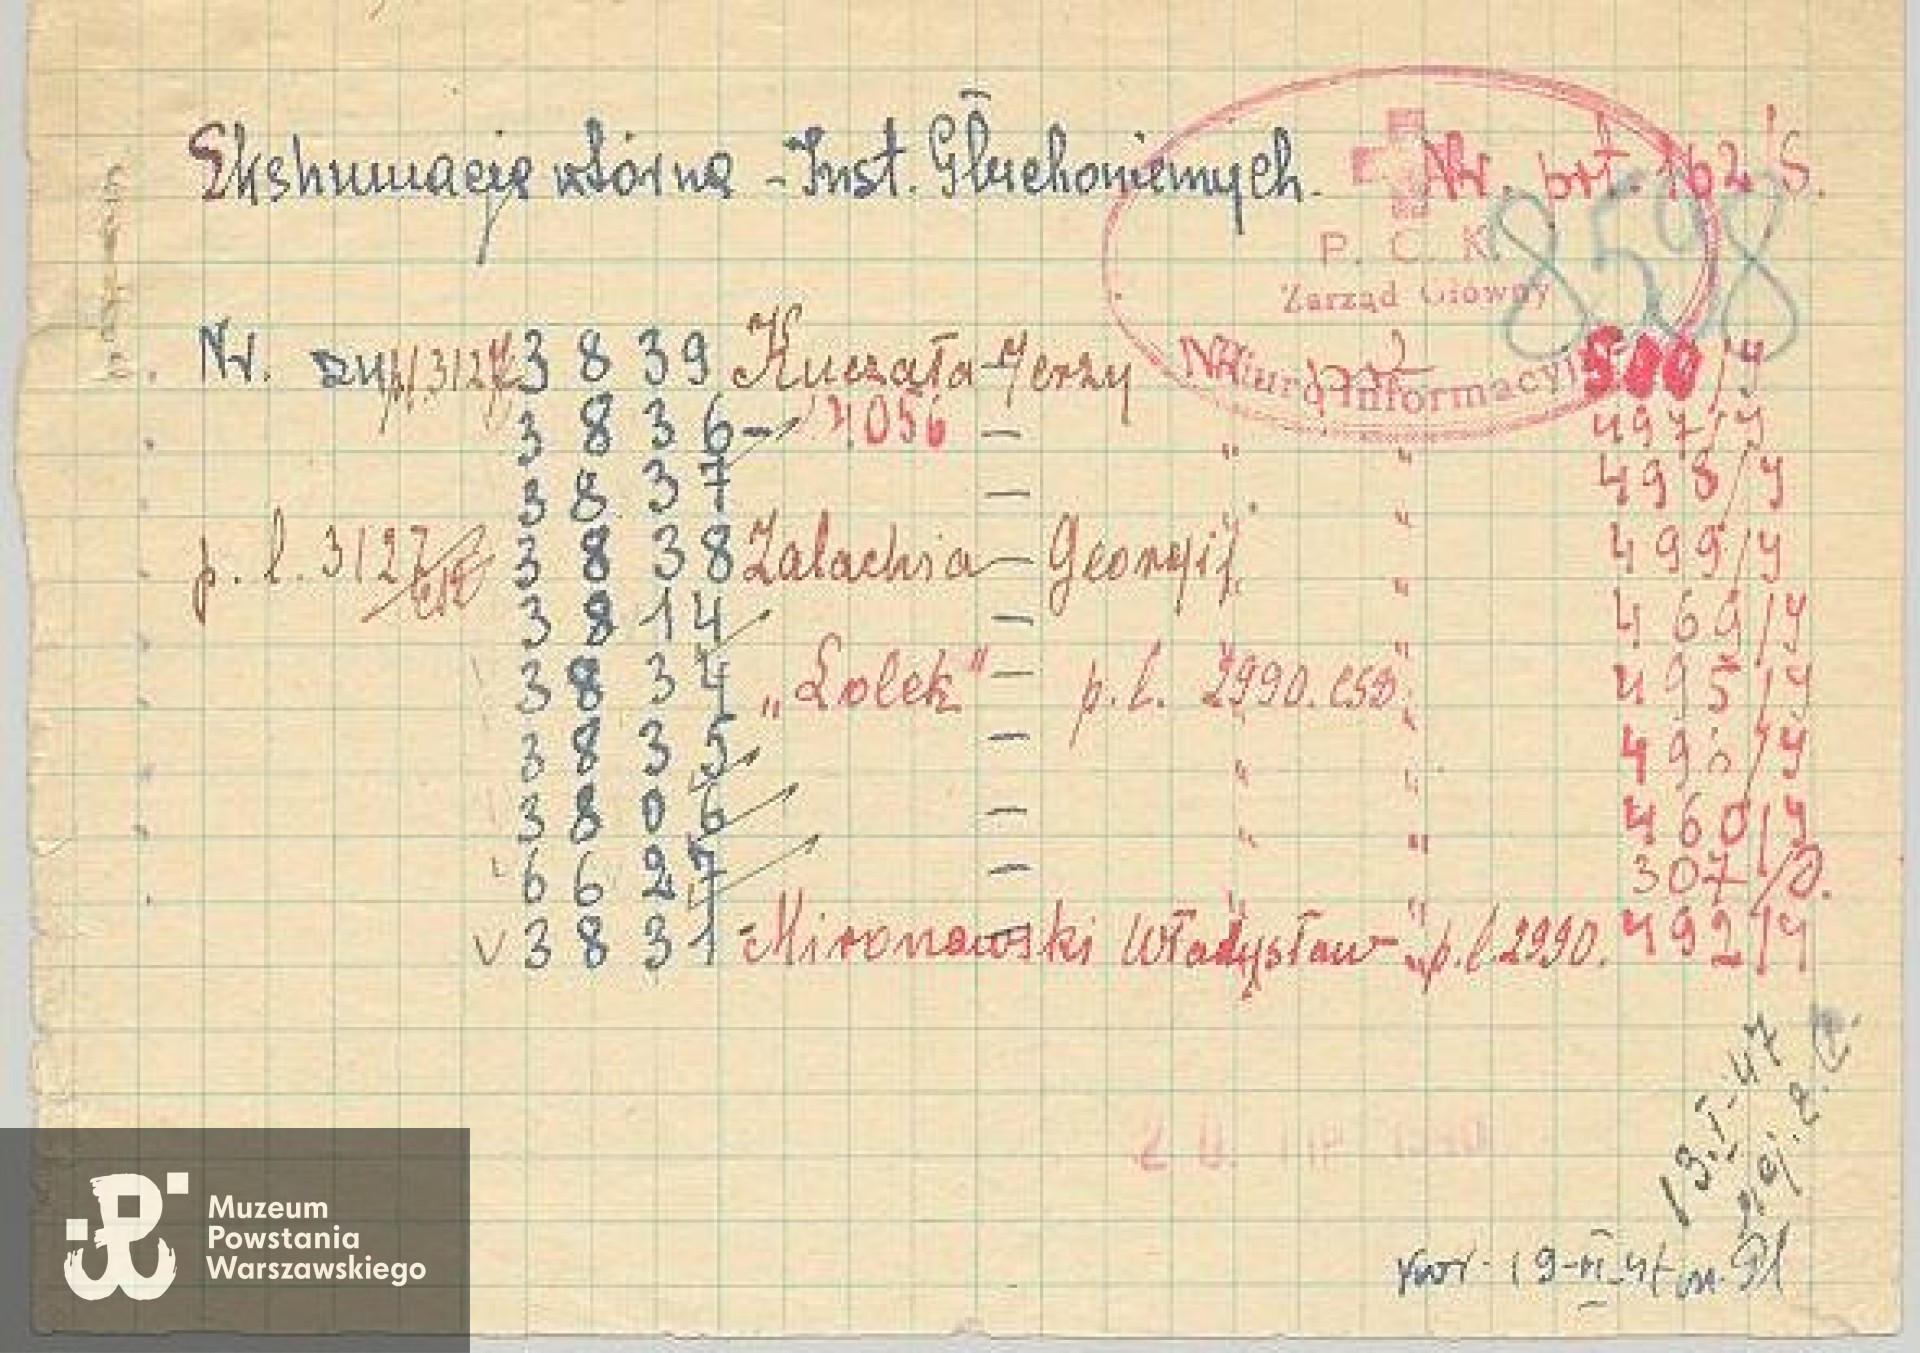 Ekshumacja wtórna - Inst. Głuchoniemych. Nr. prt. 162/S.
8598
P. C. K.
Zarząd Główny
Biuro Informacyjne
Nr. p.l. 3127 3839 Kuczała Jerzy Nr. 500/4
3836 - 4056 — " " 497/4
3837 — " " 498/4
p. l. 3127 3838 Zalachia — Georgij " 499/4
3814 — " 469/4
3834 „Lolek” — p.l. 2990. 495/4
3835 — " " 496/4
3806 — " " 460/4
6627 — " " 307/
v 3831 - Mironowski Władysław - p.l. 2990. 492/4
13.I-47
19-II-47
Muzeum
Powstania
Warszawskiego